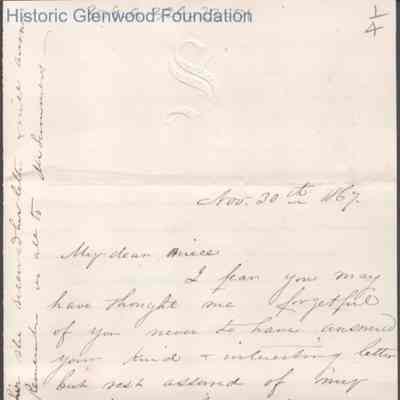 Historic Glenwood Foundation
1/4
S
Nov. 30th 1867.
My dear niece
I fear you may
have thought me forgetful
of you never to have answered
your kind & interesting letter
but rest assured of my
she received her letter & will answer
Remember us all to Mr Summers